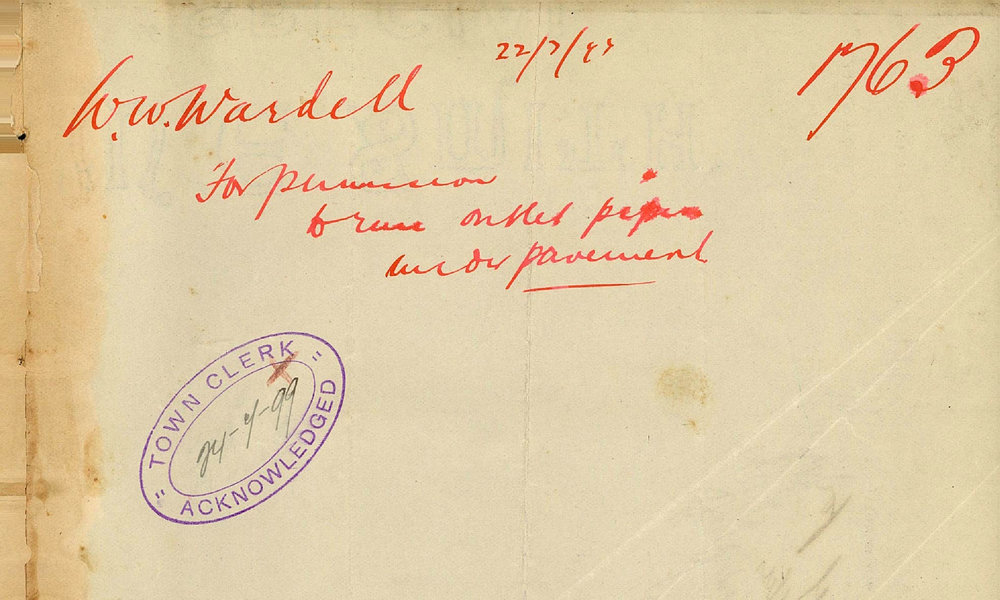 22/7/99
1763
W.W. Wardell
For permission
to run outlet pipes
under pavement
"TOWN CLERK"
24-7-99
ACKNOWLEDGED